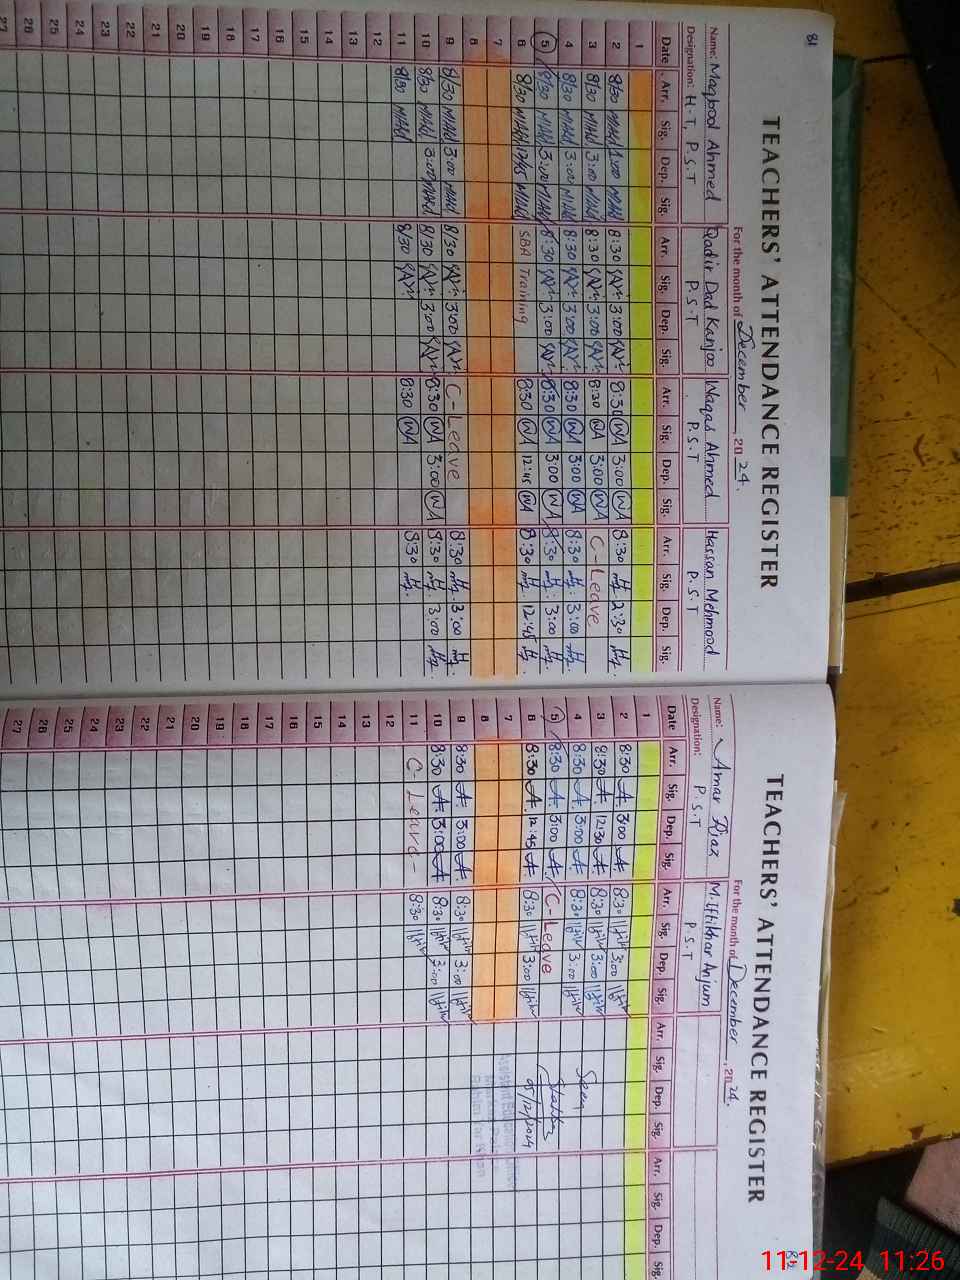 81
TEACHERS' ATTENDANCE REGISTER
For the month of December, 2024.
Name: Maqbool Ahmed Qadir Dad Kanjoo Waqas Ahmed Hassan Mehmood
Designation: H.T, P.S.T P.S.T P.S.T P.S.T
Date Arr. Sig. Dep. Sig. Arr. Sig. Dep. Sig. Arr. Sig. Dep. Sig. Arr. Sig. Dep. Sig.
1
2 8/30 1:00 8:30 3:00 8:30 WA 3:00 WA 8:30 2:30
3 8/30 3:00 8:30 3:00 8:30 WA 3:00 WA C-Leave
4 8/30 3:00 8:30 3:00 8:30 WA 3:00 WA 8:30 3:00
5 8/30 3:00 8:30 3:00 8:30 WA 3:00 WA 8:30 3:00
6 8/30 12/45 SBA Training 8:30 WA 12:45 WA 8:30 12:45
7
8
9 8/30 3:00 8/30 3:00 C-Leave 8:30 3:00
10 8/30 3:00 8/30 3:00 8:30 WA 3:00 WA 8:30 3:00
11 8/30 8/30 8:30 WA 8:30
12
13
14
15
16
17
18
19
20
21
22
23
24
25
26
27
82
TEACHERS' ATTENDANCE REGISTER
For the month of December, 2024.
Name: Amar Riaz M. Iftikhar Anjum
Designation: P.S.T P.S.T
Date Arr. Sig. Dep. Sig. Arr. Sig. Dep. Sig. Arr. Sig. Dep. Sig. Arr. Sig. Dep. Sig.
1
2 8:30 A. 3:00 A. 8:30 3:00
3 8:30 A. 12:30 A. 8:30 3:00
4 8:30 A. 3:00 A. 8:30 3:00 Seen
5 8:30 A. 3:00 A. C-Leave
6 8:30 A. 12:45 A. 8:30 3:00 05/12/2024
7
8
9 8:30 A. 3:00 A. 8:30 3:00
10 8:30 A. 3:00 A. 8:30 3:00
11 C-Leave- 8:30
12
13
14
15
16
17
18
19
20
21
22
23
24
25
26
27
11-12-24 11:26